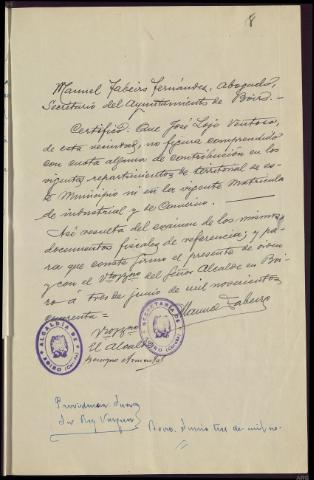 8
Manuel Tabeiro Fernández, Abogado,
Secretario del Ayuntamiento de Boiro.-
Certifico: Que José Lojo Ventoso,
de esta vecindad, no figura comprendido
con cuota alguna de contribución en los
vigentes repartimientos de territorial de es-
te Municipio ni en la vigente Matrícula
de industrial y de Comercio.
Así resulta del examen de los mismos
documentos fiscales de referencia; y pa-
ra que conste firmo el presente de orden
y con el Vto Bno del Señor Alcalde en Boi-
ro a tres de junio de mil novecientos
cuarenta=
Vto Bno
El Alcalde
Manuel Tabeiro
ALCALDIA DE BOIRO
SECRETARIA
Providencia Juez
Sr Rey
Boiro Junio tres de mil no-